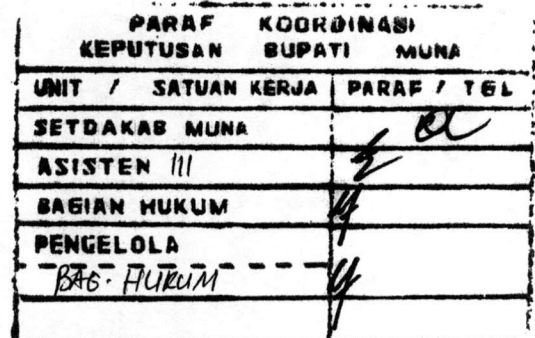 PARAF KOORDINASI
KEPUTUSAN BUPATI MUNA
UNIT / SATUAN KERJA PARAF / TGL
SETDAKAB MUNA
ASISTEN III
BAGIAN HUKUM
PENGELOLA
BAG. HUKUM